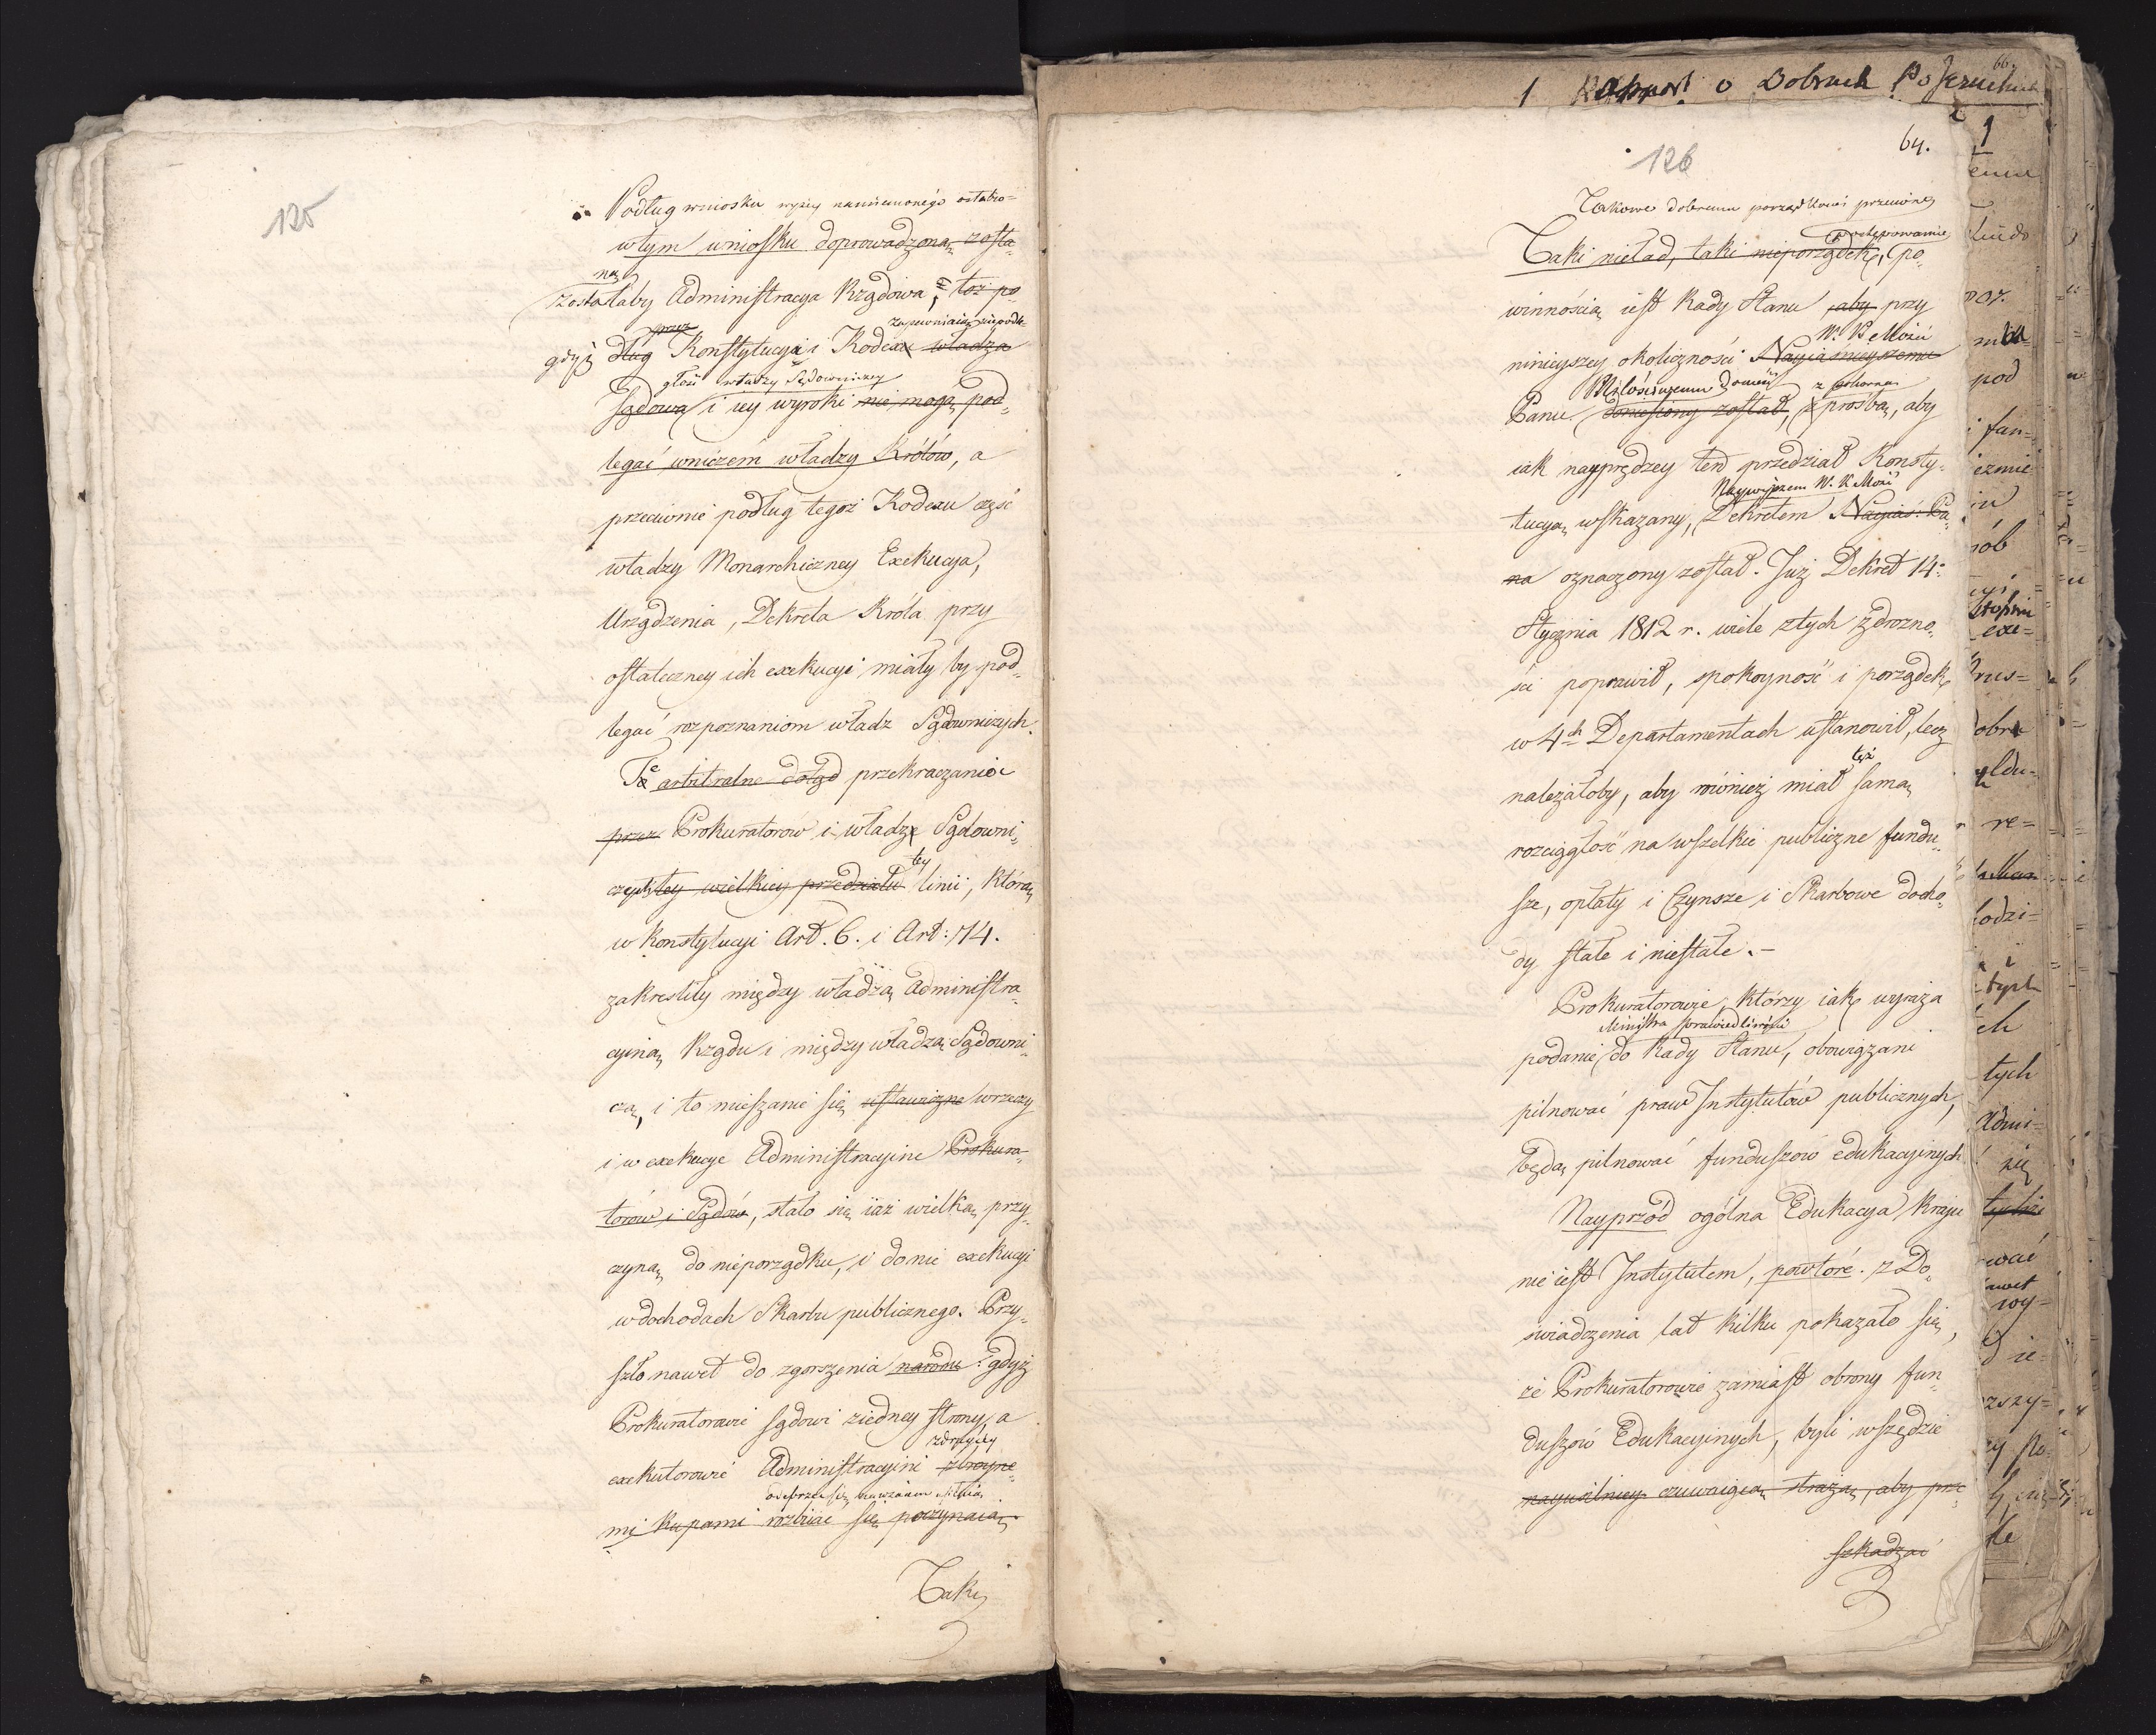 125
Podług wniosku wyżey namienionego ostatno=
wtym wniosku doprowadzoną zosta
ną
zostałaby Administracya Rządowa, toż po
przez zapewniaią niepodle=
gdyż dług Konstytucyi i Kodexu władza
głość władzy Sądowniczey
Sądowa i iey wyroki nie mogą pod„
legać wniczém władzy Królów, a
przeciwnie podług tegoż Kodexu część
władzy Monarchiczney Exekucya,
Urządzenia, Dekreta Króla przy
ostateczney ich exekucyi miały by pod„
legać rozpoznaniom władz Sądowniczych.
Te arbitralne dotąd przekraczanie
przez Prokuratorów i władze Sądowni„
tey
czych tey wielkiey przedziału linii, którą
w Konstytucyi Art. 6. i Art: 74.
zakreśliły między władzą Administra„
cyiną Rządu i między władzą Sądowni„
czą, i to mieszanie się ustawiczne wrzeczy
i w exekucye Administracyine Prokura„
torów i Sądów, stało się iuż wielką przy„
czyną do nieporządku, i do nie exekucyi
wdochodach Skarbu publicznego. Przy„
szło nawet do zgorszenia narodu gdyż
Prokuratorowie Sądowi ziedney strony, a
zdrugiey
exekutorowie Administracyini zbroyne„
mi kupami rozbiiać się poczynaią.
Taki
1 Rapport o Dobrach Po Jezuickich
66.
64.
126
Takowe dobremu porządkowi przeciwne
postępowanie
Taki nieład, taki nieporządek, po„
winnością iest Rady Stanu aby przy
W. K Mości
ninieyszey okoliczności Nayiasnieyszemu
Miłościwemu donieść z pokorną
Panu doniesiony został, z prośbą, aby
iak nayprędzey ten przedział Konsty„
Naywyższem W. K Mości
tucyą wskazany, Dekretem Nayiaś: Pa„
na oznaczony został. Już Dekret 14:
Stycznia 1812 r. wiele złych zdrożno„
ści poprawił, spokoyność i porządek
w 4ch Departamentach ustanowił, lecz
też
należałoby, aby również miał samą
rozciągłość na wszelkie publiczne fundu„
sze, opłaty i Czynsze i Skarbowe docho„
dy stałe i niestałe.–
Prokuratorowie, którzy iak wyraża
Ministra sprawiedliwości
podanie do Rady Stanu, obowiązani
pilnować praw Instytutów publicznych,
będą pilnować funduszów edukacyinych
Nayprzód ogólna Edukacya Kraju
nie iest Instytutem, powtóre. z Do„
świadczenia lat kilku pokazało się,
że Prokuratorowie zamiast obrony fun„
duszów Edukacyinych, byli wszędzie
nayusilniey czuwaiącą strażą, aby prze„
szkadzać